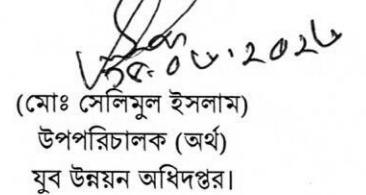 (মোঃ সেলিমুল ইসলাম)
উপপরিচালক (অর্থ)
যুব উন্নয়ন অধিদপ্তর।